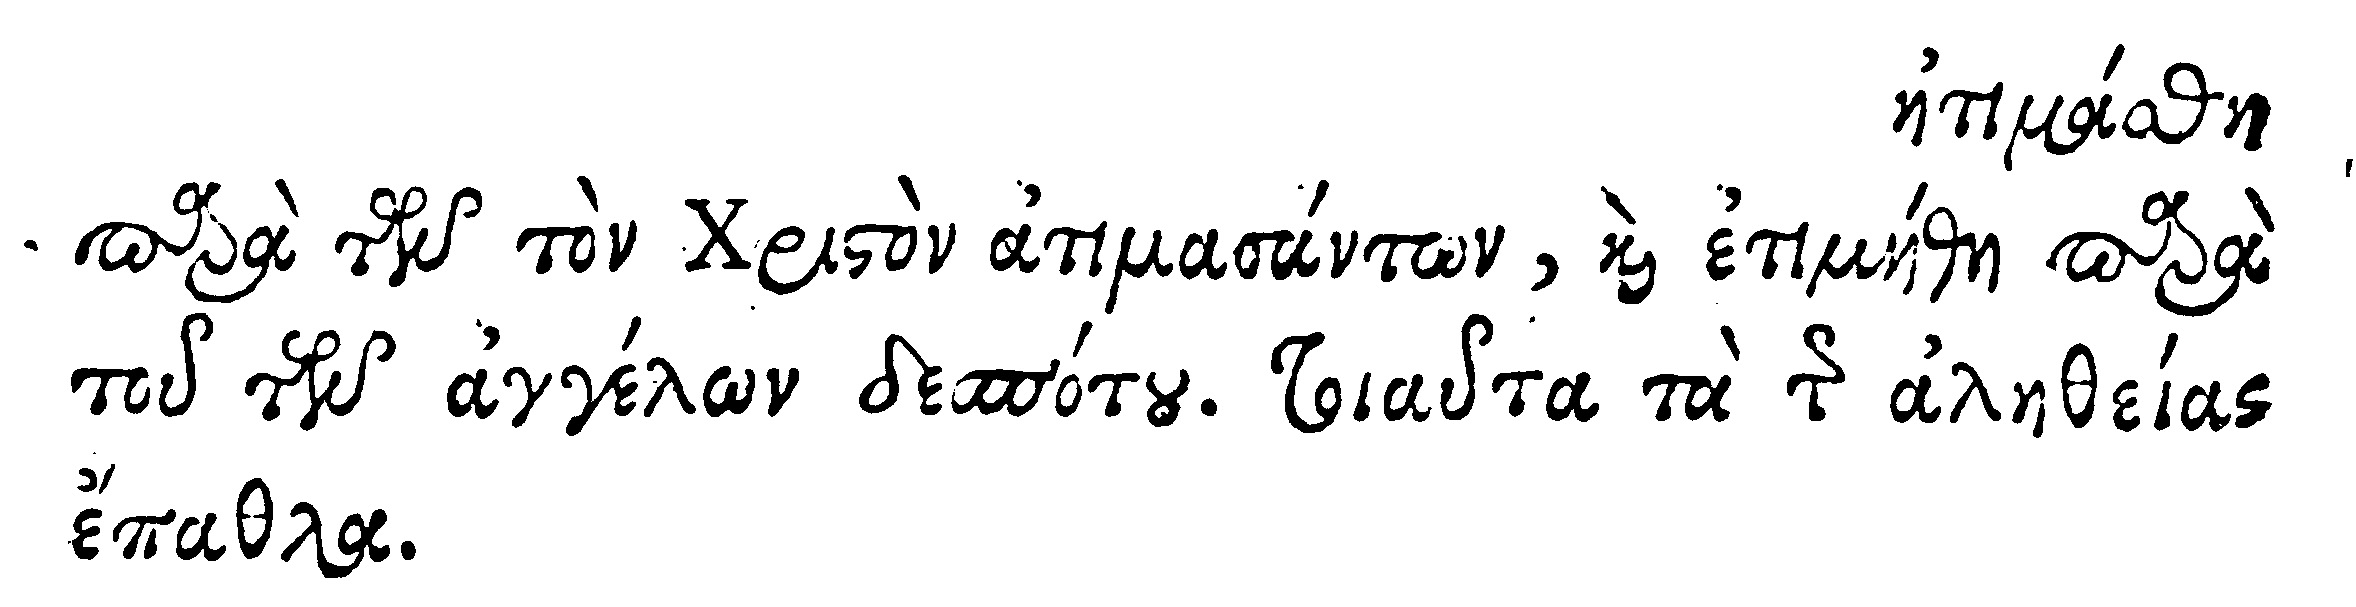 ἠτιμάσθη
παρὰ τῶν τὸν Χριστὸν ἀτιμασάντων, καὶ ἐτιμήθη παρὰ
τοῦ τῶν ἀγγέλων δεσπότου. Τοιαῦτα τὰ τῆς ἀληθείας
ἔπαθλα.